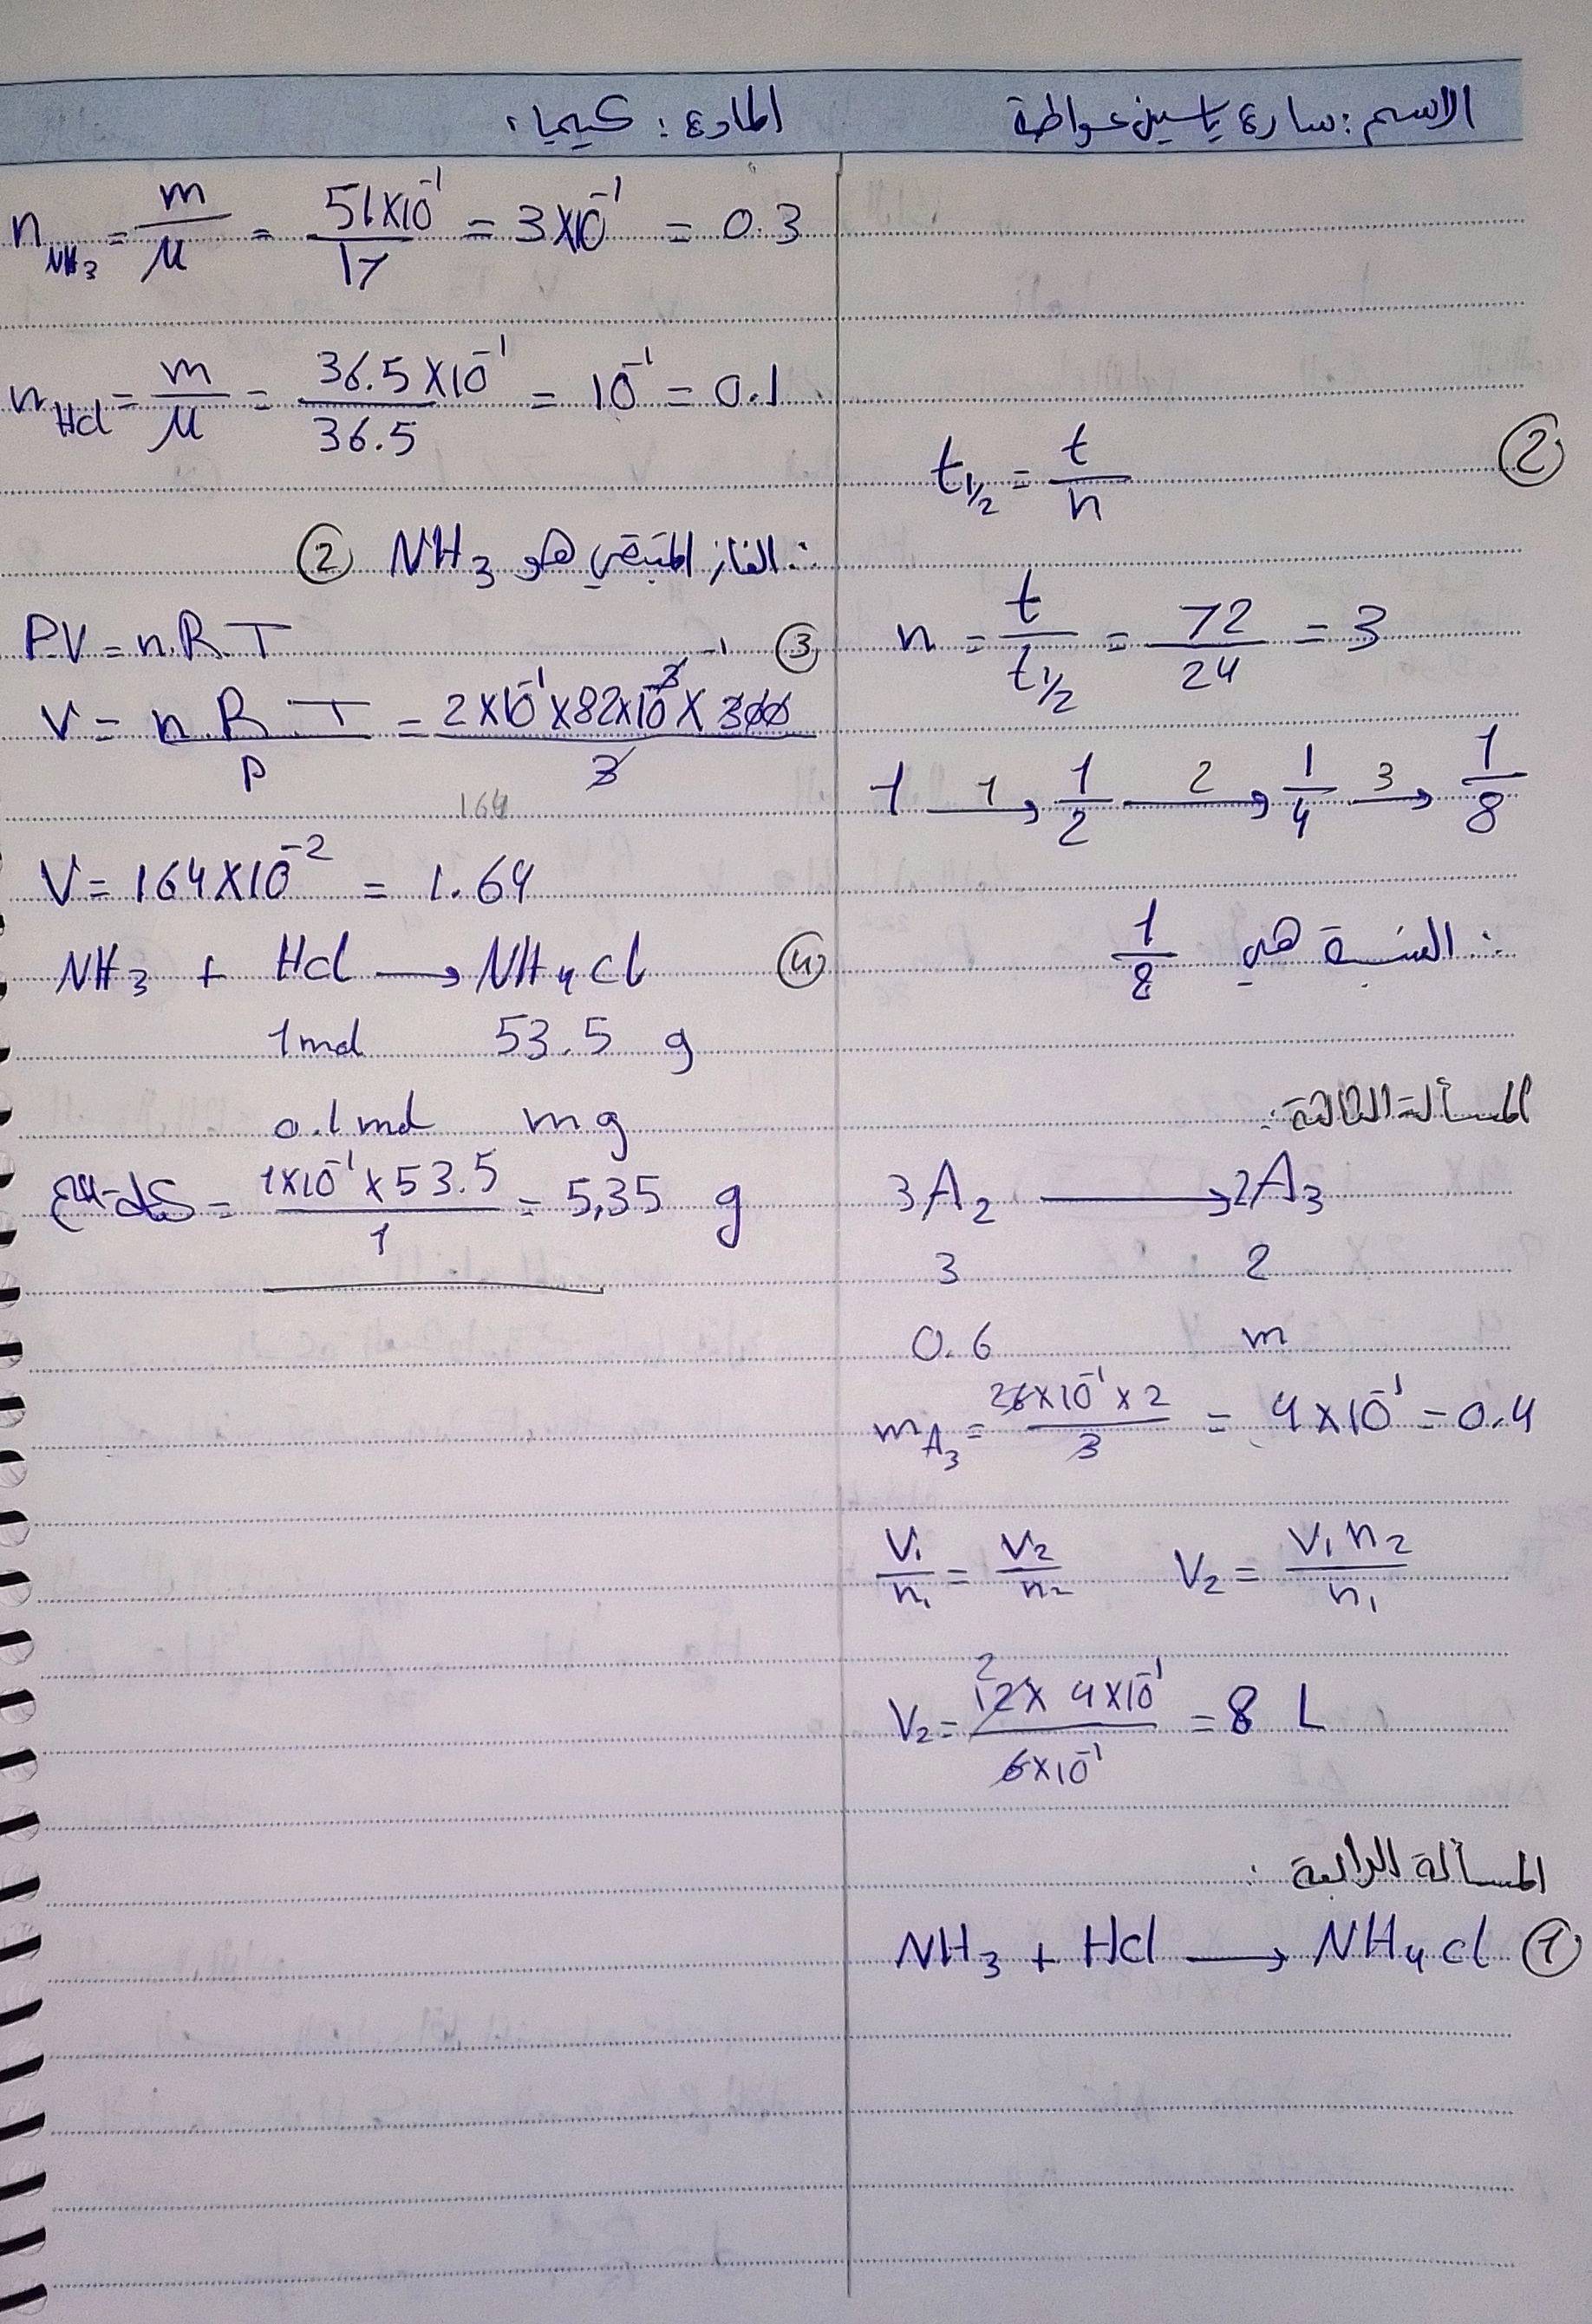 الاسم: سارة ياسين عواطة
المادة: كيمياء
②
t1/2 = t/n
n = t/t1/2 = 72/24 = 3
1 —1→ 1/2 —2→ 1/4 —3→ 1/8
∴ النسبة هي 1/8
المسألة الثالثة:
3A₂ → 2A₃
3 2
0.6 m
mA₃ = 6×10⁻¹×2/3 = 4×10⁻¹ = 0.4
V₁/n₁ = V₂/n₂ V₂ = V₁n₂/n₁
V₂ = 12×4×10⁻¹/6×10⁻¹ = 8 L
المسألة الرابعة:
① NH₃ + Hcl → NH₄cl
nNH₃ = m/M = 51×10⁻¹/17 = 3×10⁻¹ = 0.3
nHcl = m/M = 36.5×10⁻¹/36.5 = 10⁻¹ = 0.1
∴ الغاز المتبقي هو NH₃ ②
③ P.V = n.R.T
V = n.R.T/P = 2×10⁻¹×82×10⁻³×300/3
164
V = 164×10⁻² = 1.64
④ NH₃ + Hcl → NH₄cl
1mol 53.5 g
0.1mol m g
= 1×10⁻¹×53.5/1 = 5,35 g